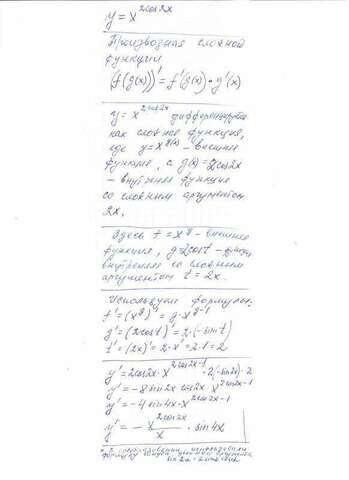 y = x^{2cos2x}
Производная сложной
функции
(f(g(x)))' = f'(g(x)) • g'(x)
y = x^{2cos2x} дифференцируется
как сложная функция,
где y = x^{g(x)} – внешняя
функция, а g(x) = 2cos2x
– внутренняя функция
со сложным аргументом
2x.
Здесь t = x^g – внешняя
функция, g = 2cost – функция
внутренняя со сложным
аргументом t = 2x.
Используем формулы:
f' = (x^g)' = g·x^{g-1}
g' = (2cost)' = 2·(-sint)
t' = (2x)' = 2·x' = 2·1 = 2
y' = 2cos2x·x^{2cos2x-1}·2(-sin2x)·2
y' = -8sin2x cos2x · x^{2cos2x-1}
y' = -4sin4x·x^{2cos2x-1}
y' = - x^{2cos2x}/x · sin4x
* В преобразовании использовали
формулу синуса двойного аргумента
sin2α = 2sinα cosα